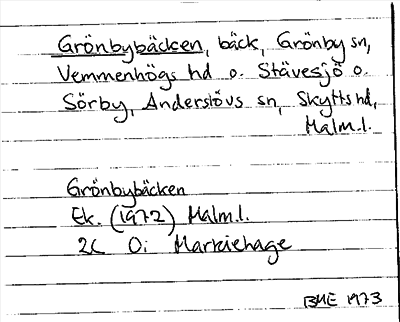 Grönbybäcken, bäck, Grönby sn,
Vemmenhögs hd o. Stävesjö o.
Sörby, Anderslövs sn, Skytts hd,
Malm.l.
Grönbybäcken
Ek. (1972) Malm.l.
2C 0i Markiehage
BME 1973